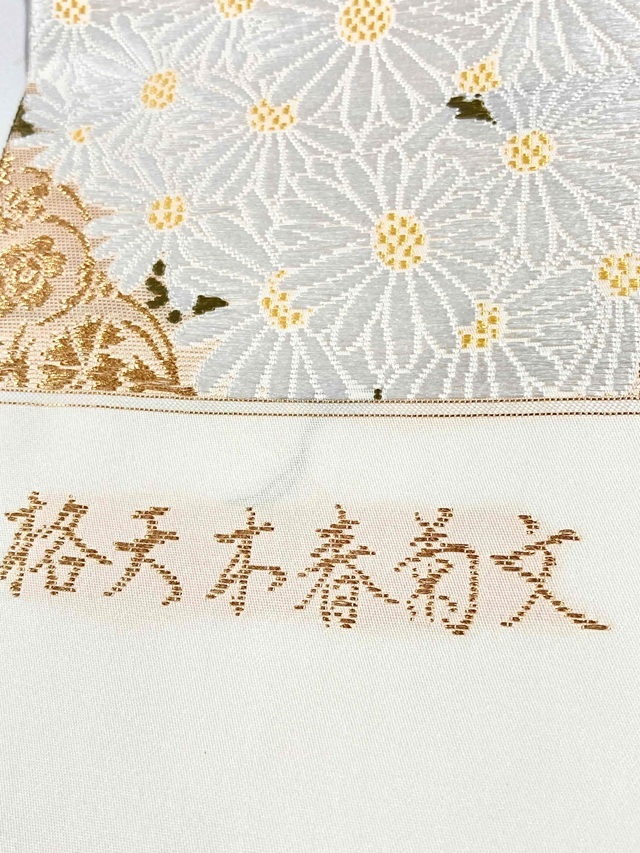 格天井春菊文